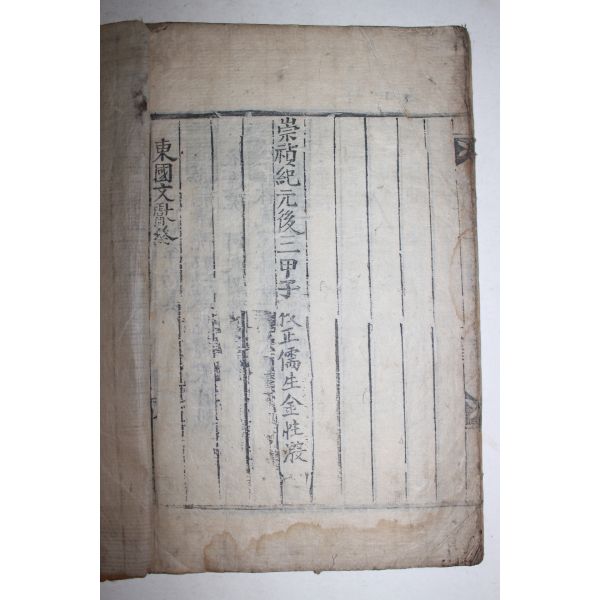 崇禎紀元後三甲子 正儒生金性溵
東國文獻終